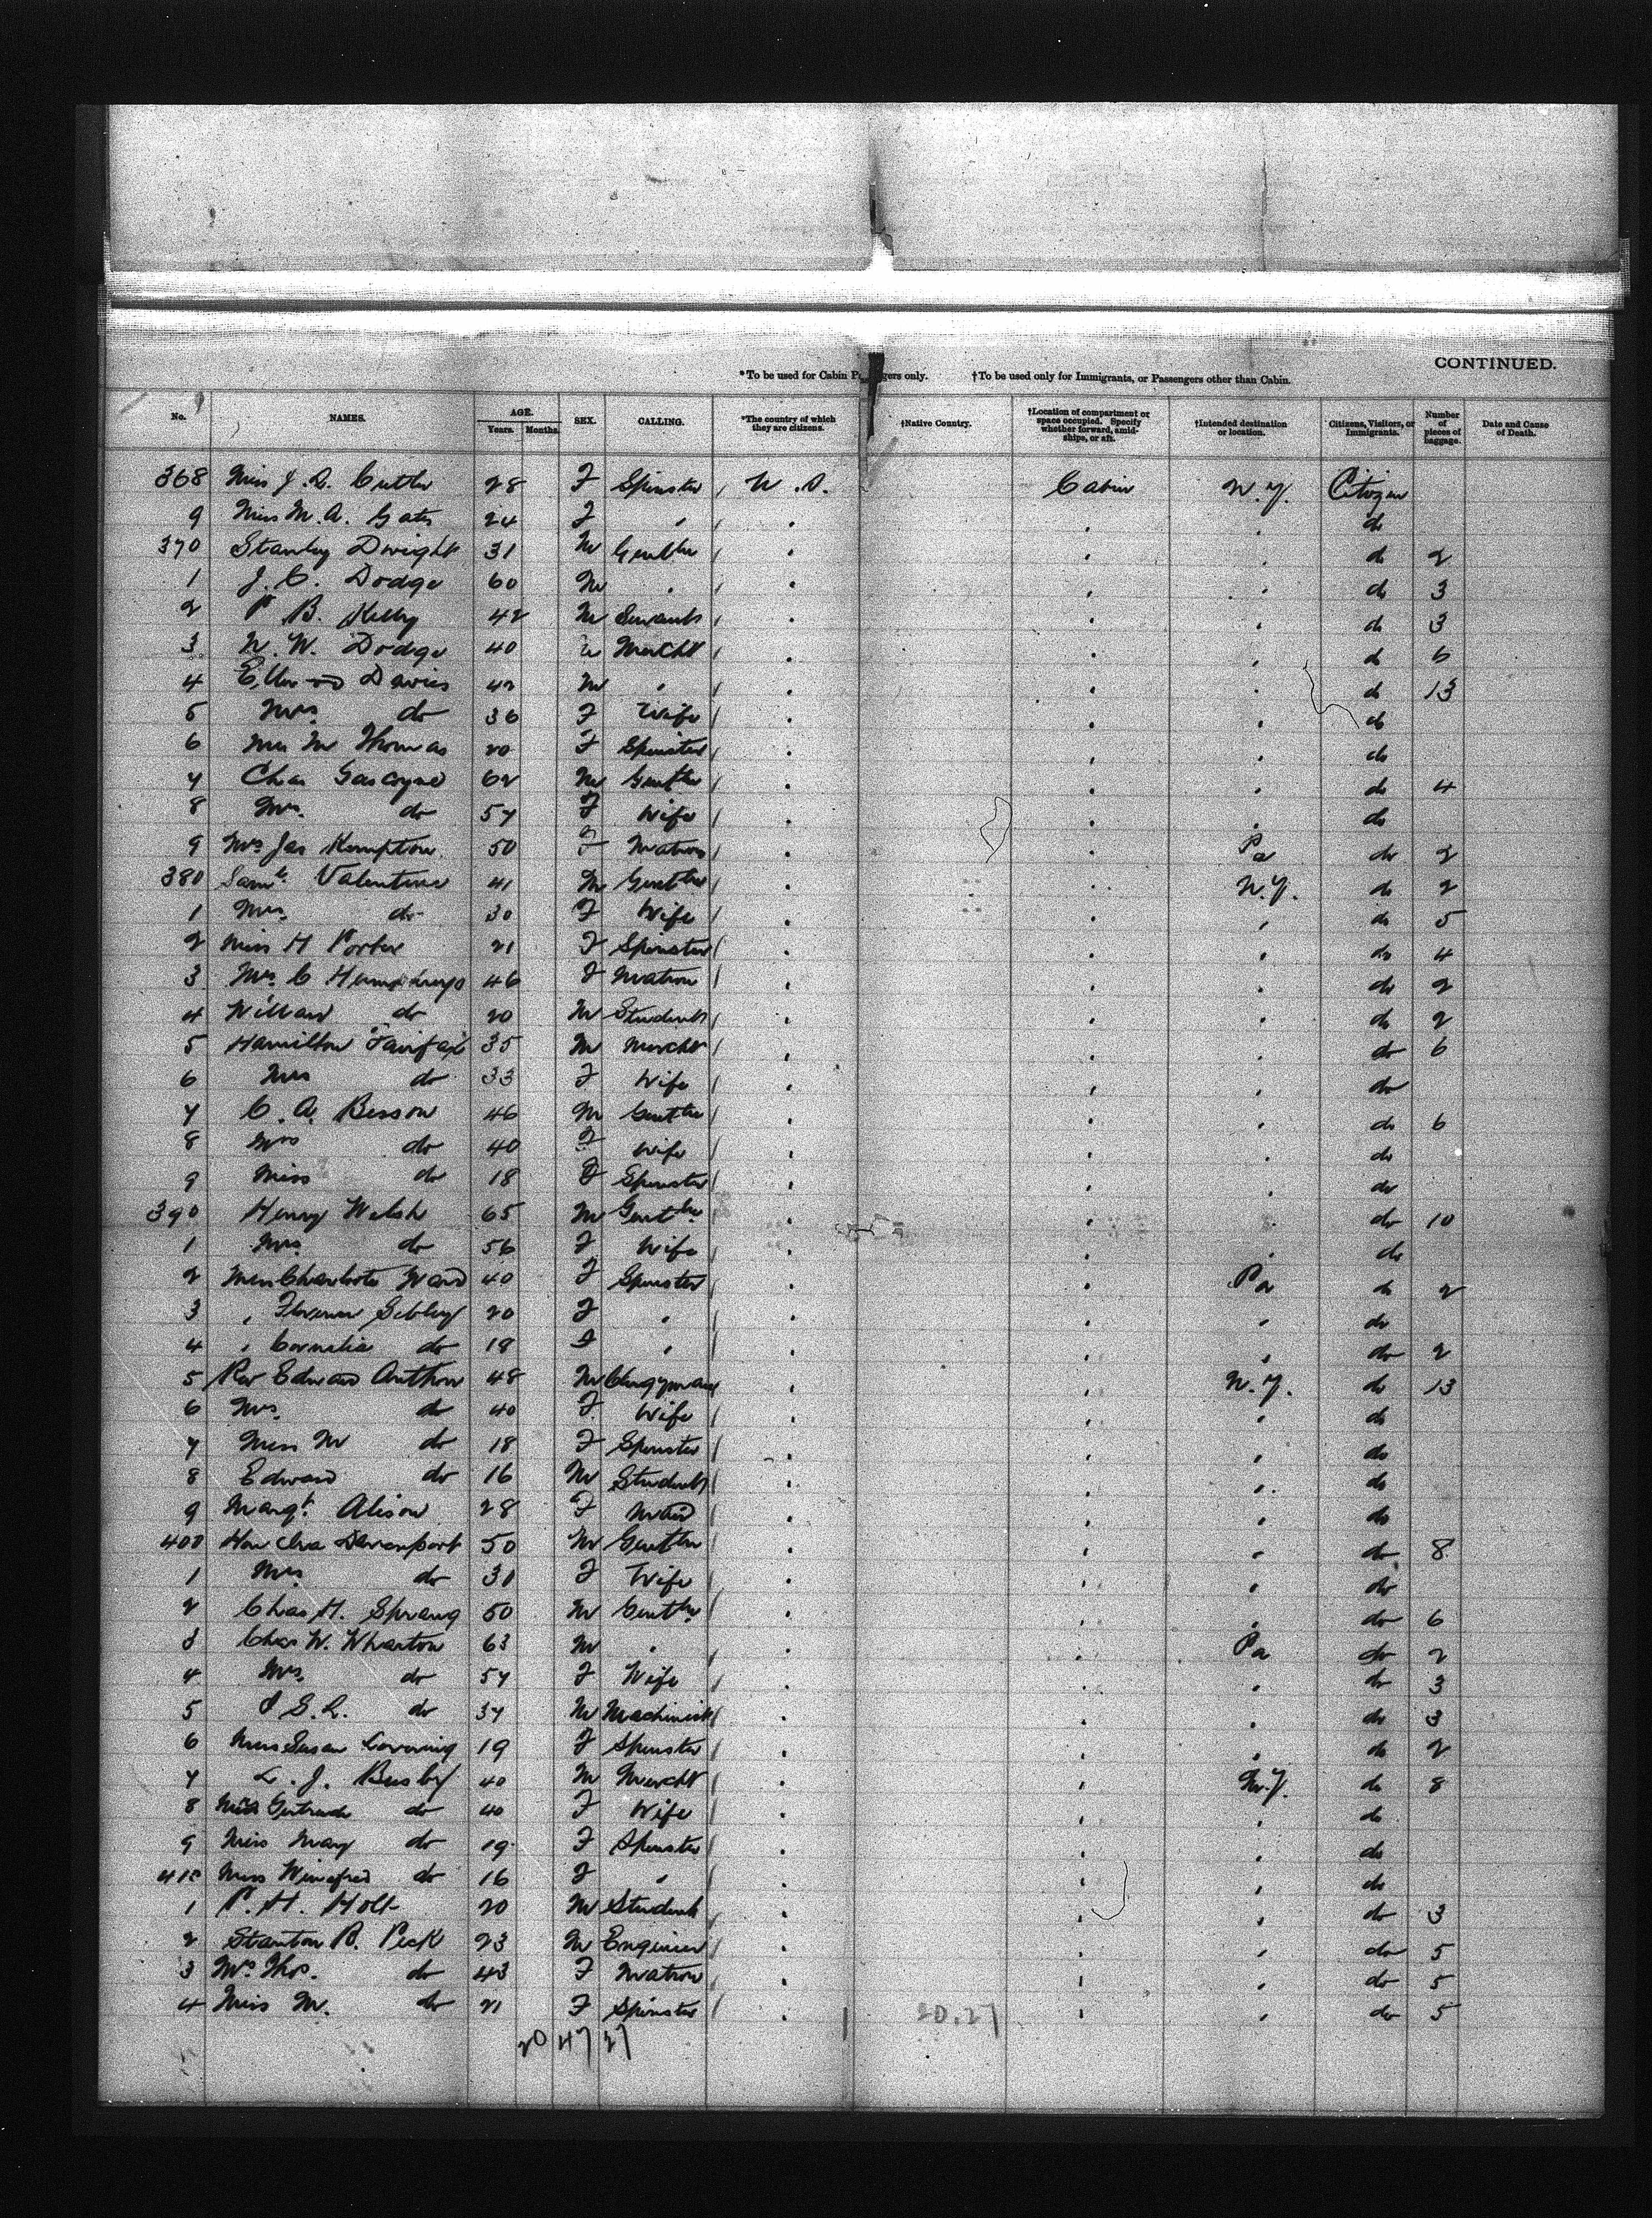 CONTINUED.
*To be used for Cabin Passengers only. †To be used only for Immigrants, or Passengers other than Cabin.
No. NAMES. AGE. Years. Months. SEX. CALLING. *The country of which they are citizens. †Native Country. †Location of compartment or space occupied. Specify whether forward, amidships, or aft. †Intended destination or location. Citizens, Visitors, or Immigrants. Number of pieces of baggage. Date and Cause of Death.
368 Miss J. L. Cutler 28 F Spinster U.S. Cabin N.Y. Citizen
9 Miss M. A. Gates 24 F " " " " do
370 Stanley Dwight 31 M Gentln " " " do 2
1 J. C. Dodge 60 M " " " " do 3
2 P B. Kelly 42 M Servants " " " do 3
3 N. W. Dodge 40 M Mercht " " " do 6
4 Ellwood Davies 42 M " " " " do 13
5 Mrs do 36 F Wife " " " do
6 Miss M Thomas 20 F Spinster " " " do
7 Chas Gascoyne 62 M Gentln " " " do 4
8 Mrs. do 57 F Wife " " " do
9 Mrs Jas Kempton 50 F Matron " " Pa do 2
380 Saml. Valentine 41 M Gentln " " N.Y. do 2
1 Mrs. do 30 F Wife " " " do 5
2 Miss H Porter 21 F Spinster " " " do 4
3 Mrs. C Humphreys 46 F Matron " " " do 2
4 Willard do 20 M Student " " " do 2
5 Hamilton Fairfax 35 M Mercht " " " do 6
6 Mrs do 33 F Wife " " " do
7 C. A. Besson 46 M Gentln " " " do 6
8 Mrs do 40 F Wife " " " do
9 Miss do 18 F Spinster " " " do
390 Henry Welsh 65 M Gentln. " " " do 10
1 Mrs. do 56 F Wife " " " do
2 Miss Charlotte Ward 40 F Spinster " " Pa do 2
3 " Florence Sibley 20 F " " " " do
4 " Cornelia do 18 F " " " " do 2
5 Rev Edward Anthon 48 M Clergyman " " N.Y. do 13
6 Mrs. do 40 F Wife " " " do
7 Miss M do 18 F Spinster " " " do
8 Edward do 16 M Student " " " do
9 Margt. Alison 28 F Maid " " " do
400 Hon Ira Davenport 50 M Gentln " " " do 8
1 Mrs do 30 F Wife " " " do
2 Chas H. Sprang 50 M Gentln " " " do 6
3 Chas W. Wharton 63 M " " " Pa do 2
4 Mrs. do 57 F Wife " " " do 3
5 S. L. do 37 M Machinist " " " do 3
6 Miss Susan 19 F Spinster " " " do 2
7 L. J. Busby 40 M Mercht " " N.Y. do 8
8 Mrs Gertrude do 40 F Wife " " " do
9 Miss Mary do 19 F Spinster " " " do
410 Miss Winifred do 16 F " " " " do
1 P. H. Holt 20 M Student " " " do 3
2 Stanton B. Peck 23 M Engineer " " " do 5
3 Mrs Thos. do 43 F Matron " " " do 5
4 Miss M. do 21 F Spinster " " " do 5
20.27
20 47 27